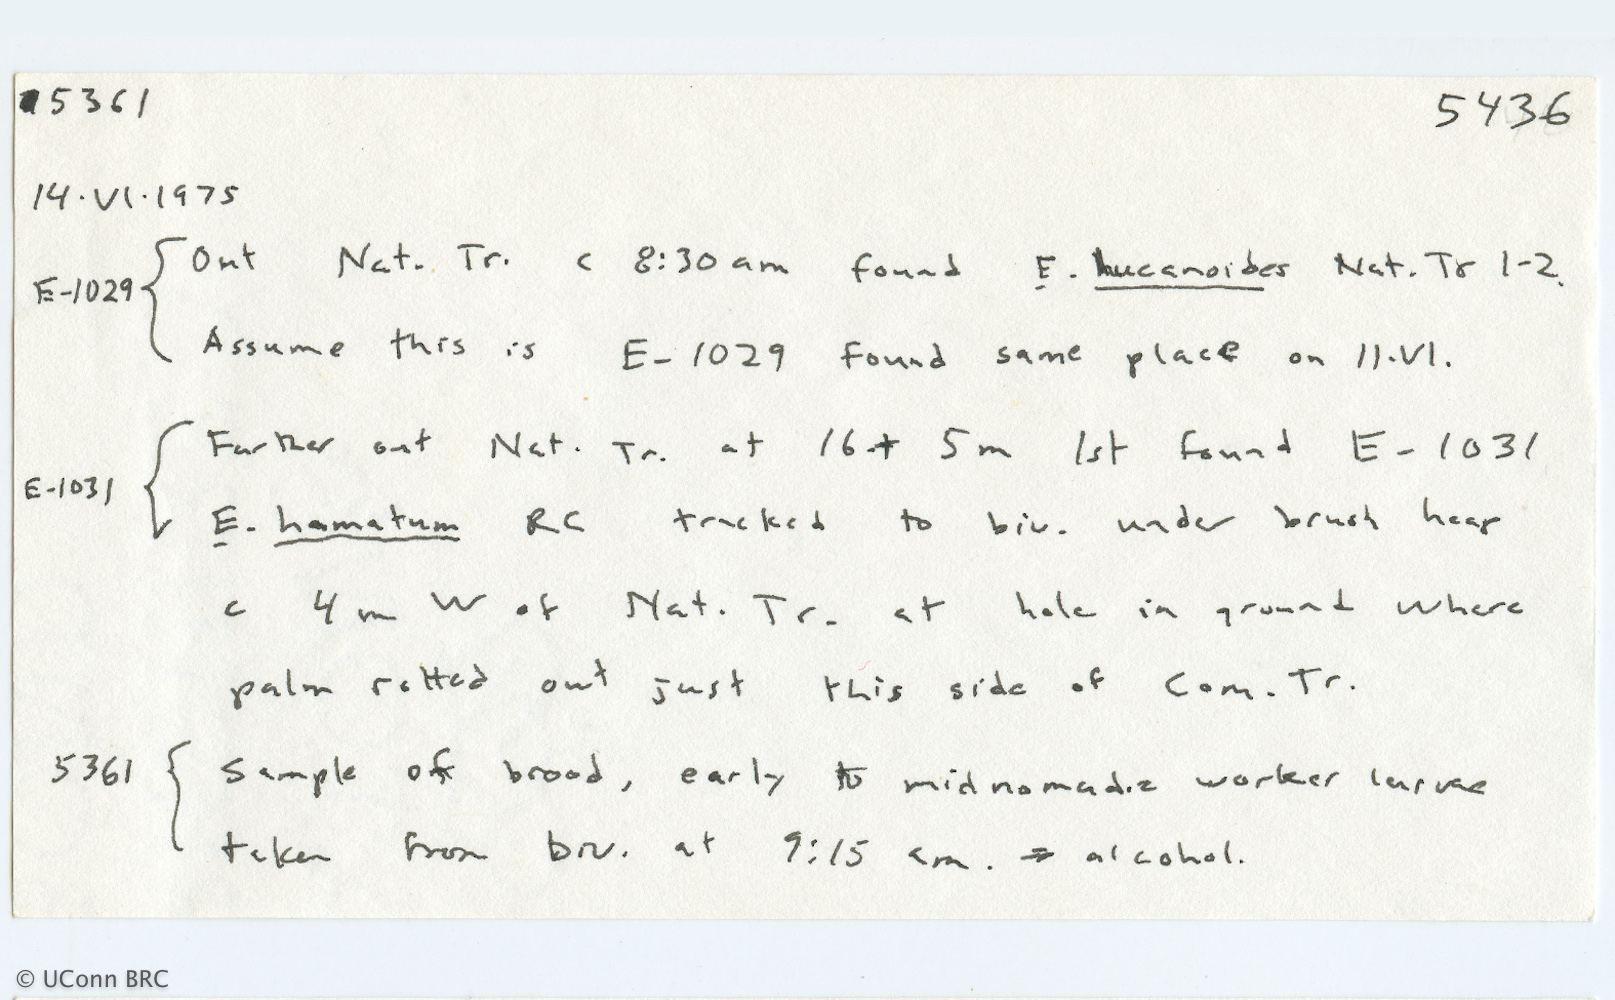 5361
5436
14.VI.1975
E-1029 { Out Nat. Tr. c 8:30 am found E. lucanoides Nat. Tr 1-2.
Assume this is E-1029 found same place on 11.VI.
E-1031 { Farther out Nat. Tr. at 16 + 5 m 1st found E-1031
E. hamatum RC tracked to biv. under brush heap
c 4 m W of Nat. Tr. at hole in ground where
palm rotted out just this side of Com. Tr.
5361 { Sample of brood, early to midnomadic worker larvae
taken from biv. at 9:15 am. ⇒ alcohol.
© UConn BRC